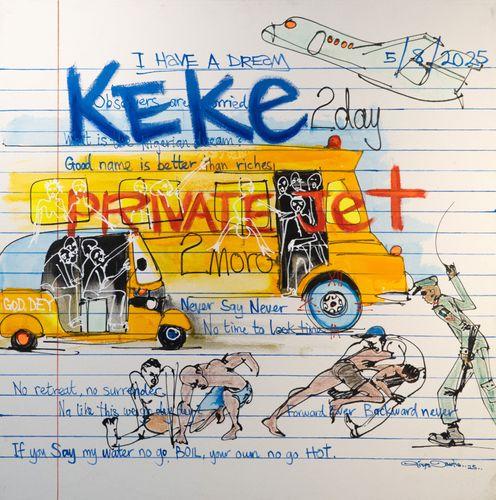 I HAVE A DREAM
5/8/2025
KEKE 2day
Observers are worried
What is the Nigerian dream?
Good name is better than riches
PRIVATE Jet
2moro
GOD DEY
Never Say Never
No time to look time
No retreat, no surrender
Na like this we
Forward Ever Backward never
If you Say my water no go BOIL, your own no go HOT.
25